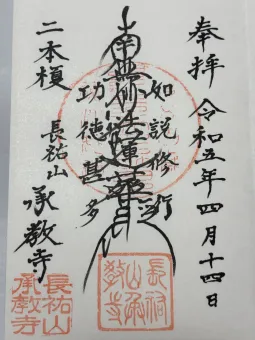 奉拝 令和五年四月十四日
如説修行
南無妙法蓮華経
功徳甚多
二本榎
長祐山 承教寺
長祐山承教寺
長祐山承教寺